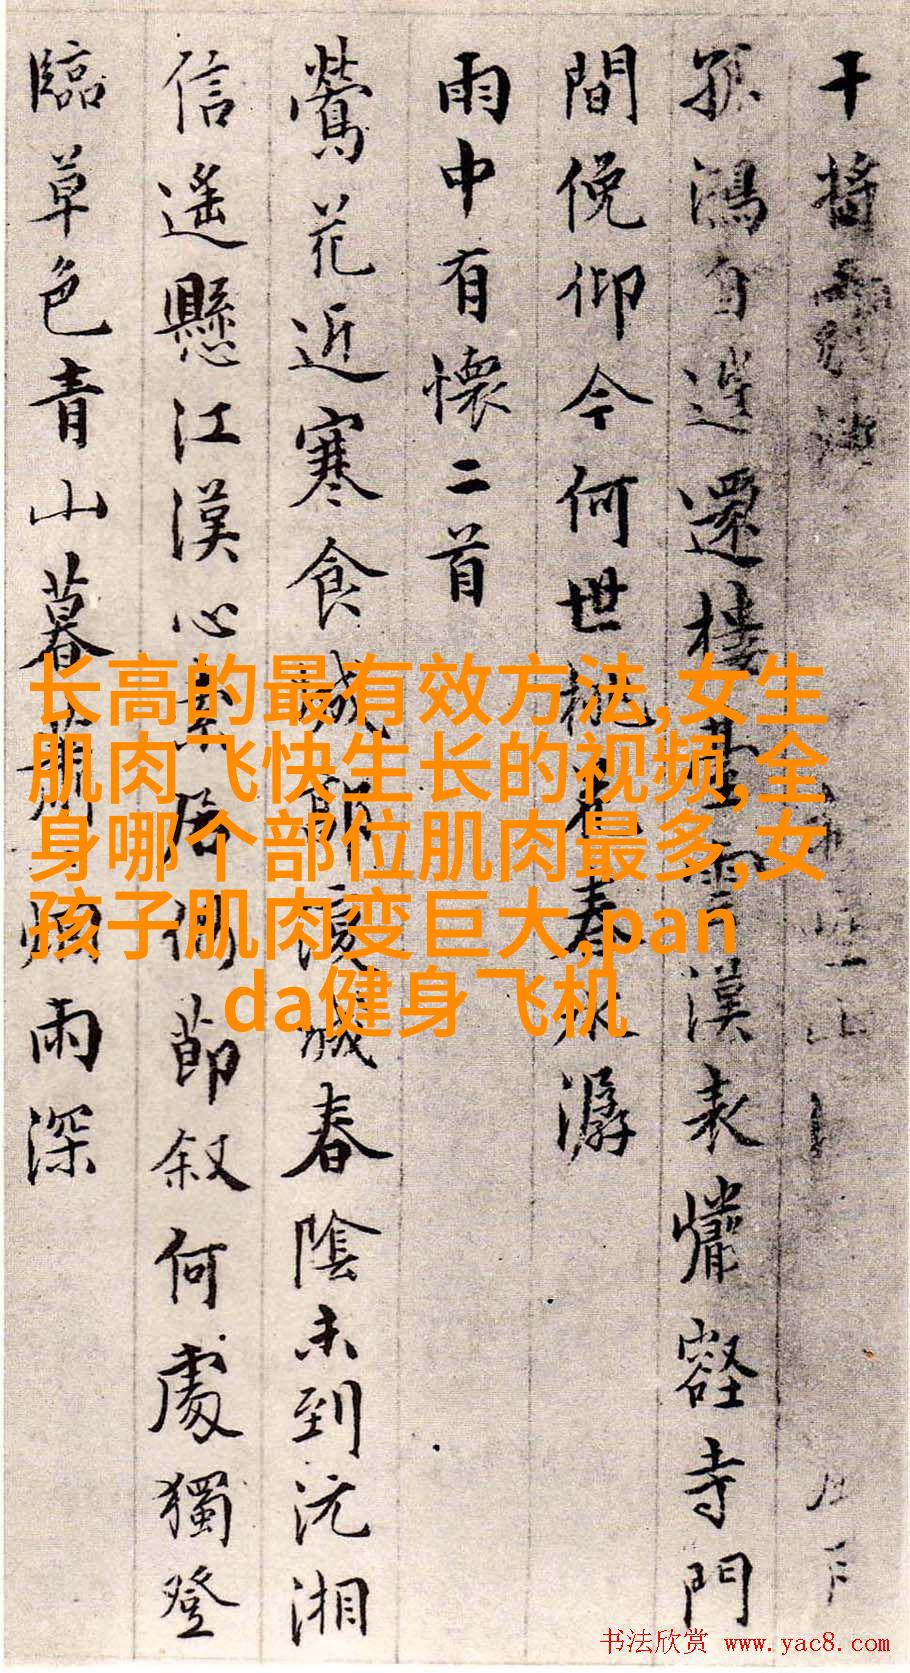 干將
孤鴻自送還樓臺雲漢表懺龕寺門
間俛仰今何世桃花春水潺
雨中有懷二首
鶯花近寒食減却懷城春陰未到沅湘
信遙懸江漢心索居傷節叙何處獨登
臨草色青山暮蕭蕭煙雨深
长高的最有效方法,女生
肌肉飞快生长的视频,全
身哪个部位肌肉最多,女
孩子肌肉变巨大,pan
da健身飞机
书法欣赏 www.yac8.com